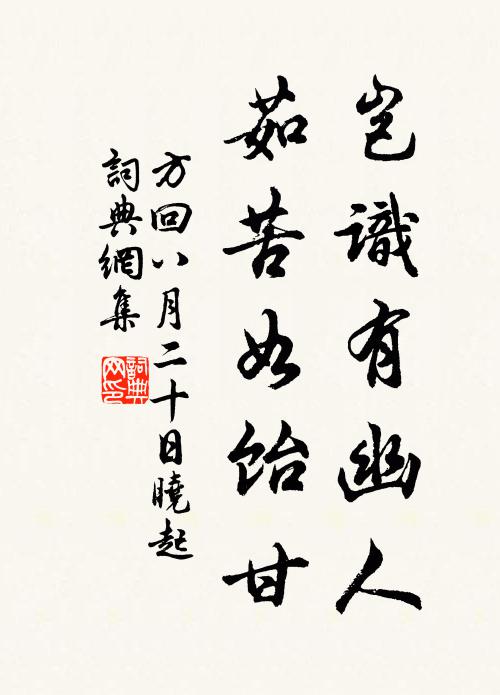 豈識有幽人
茹苦如飴甘
方回八月二十日曉起
詞典網集
詞典網印